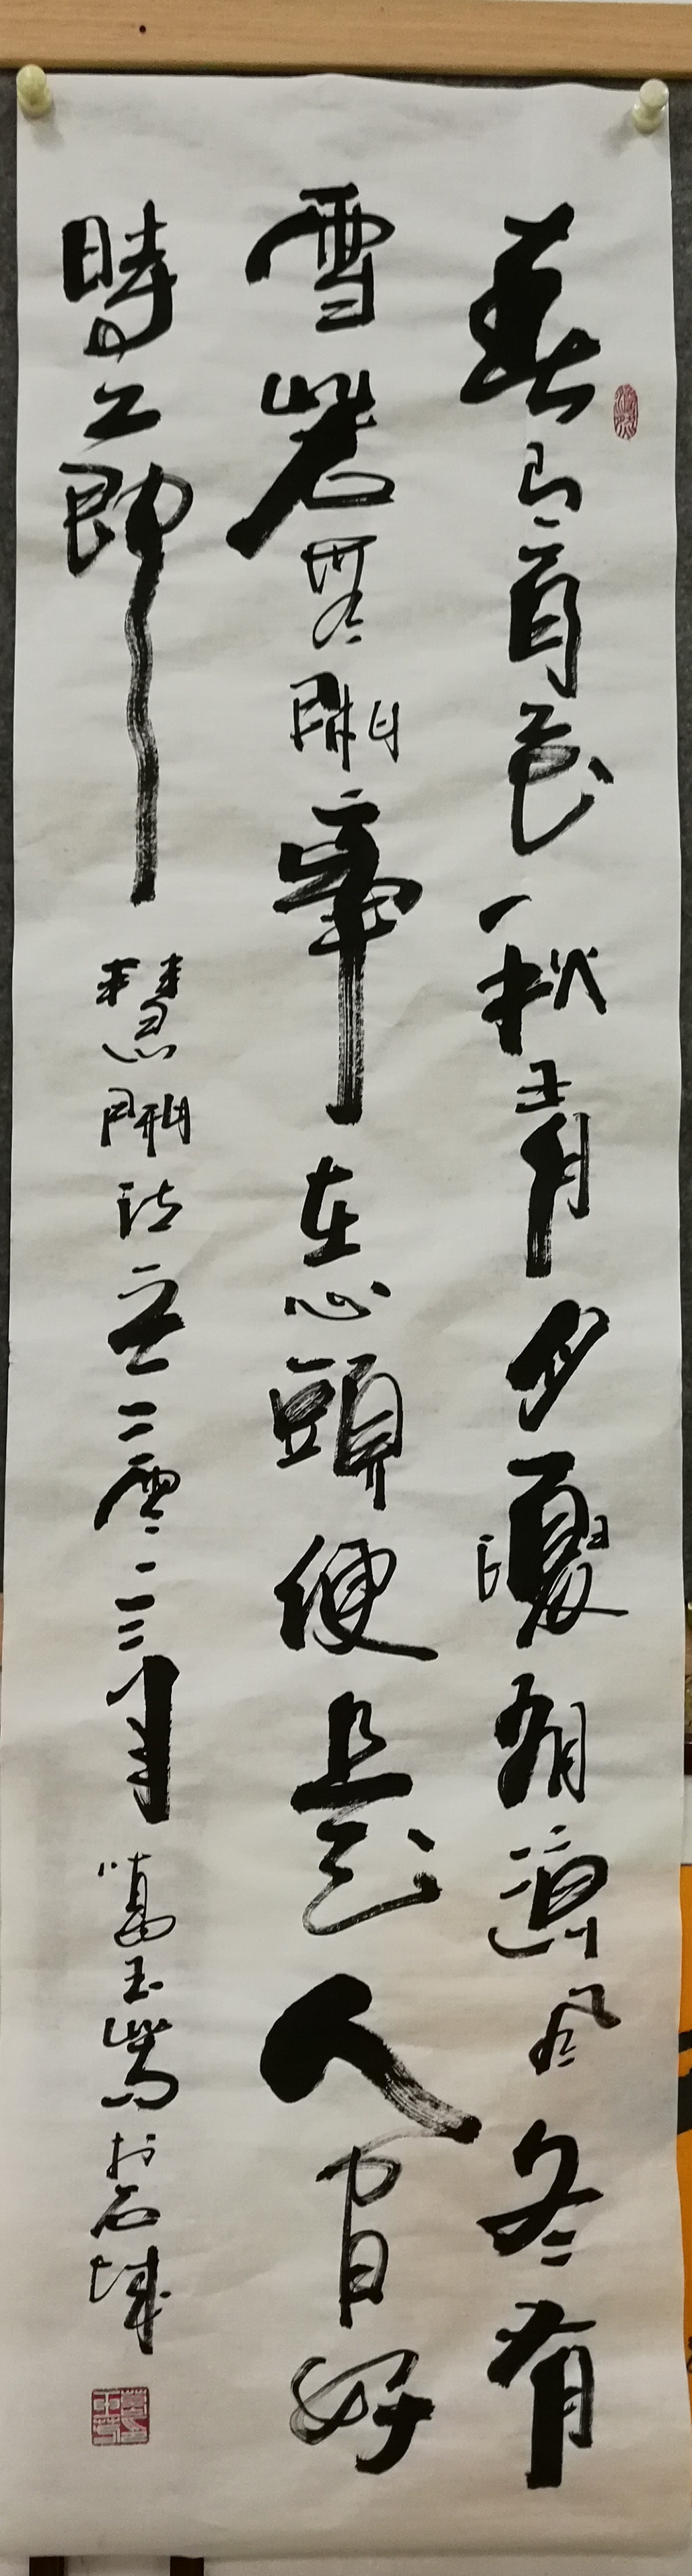 春有百花秋有月夏有涼風冬有
雪若無閑事在心頭便是人間好
時節 慧開詩 二零二三年 葛玉嵩於石城